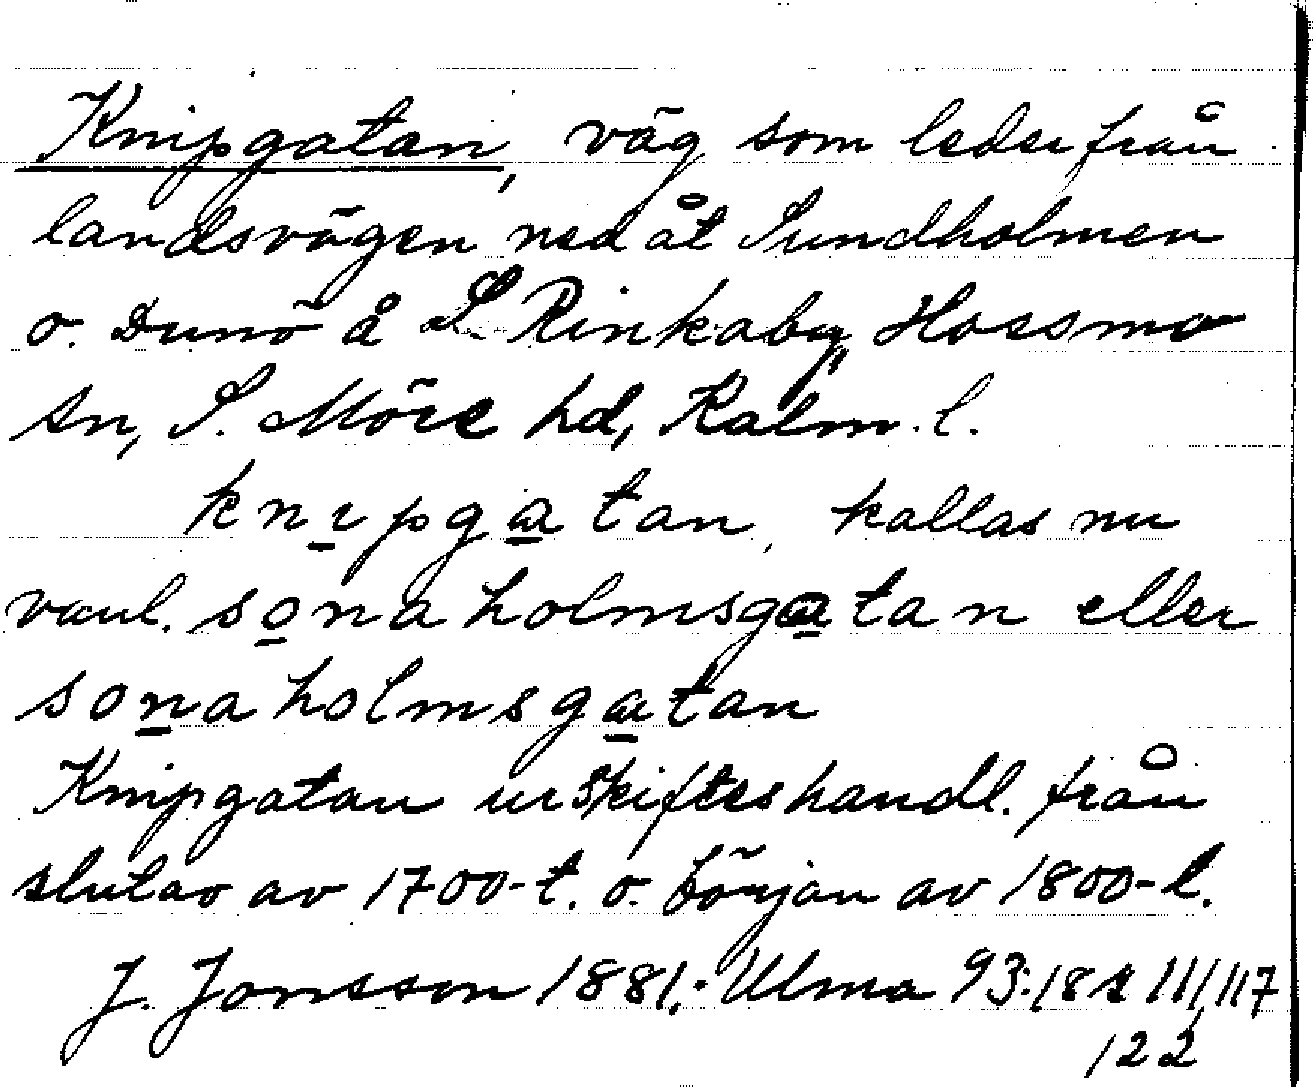 Knipgatan, väg som leder från
landsvägen ned åt Sundholmen
o. Dunö å S Rinkaby, Hossmo
sn, S. Möre hd, Kalm. l.
knıpgatan, kallas nu
vanl. sonaholmsgatan eller
sonaholmsgatan
Knipgatan ur skifteshandl. från
slutav av 1700-t. o. början av 1800-t.
J. Jonsson 1881. Ulma 93:18 s 111, 117
122